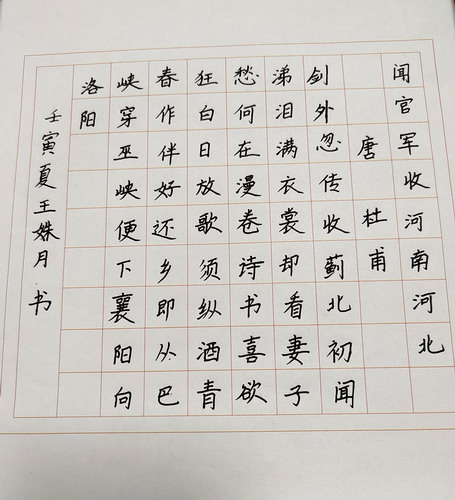 闻官军收河南河北
唐 杜甫
剑外忽传收蓟北初闻
涕泪满衣裳却看妻子
愁何在漫卷诗书喜欲
狂白日放歌须纵酒青
春作伴好还乡即从巴
峡穿巫峡便下襄阳向
洛阳
壬寅夏王姝月书